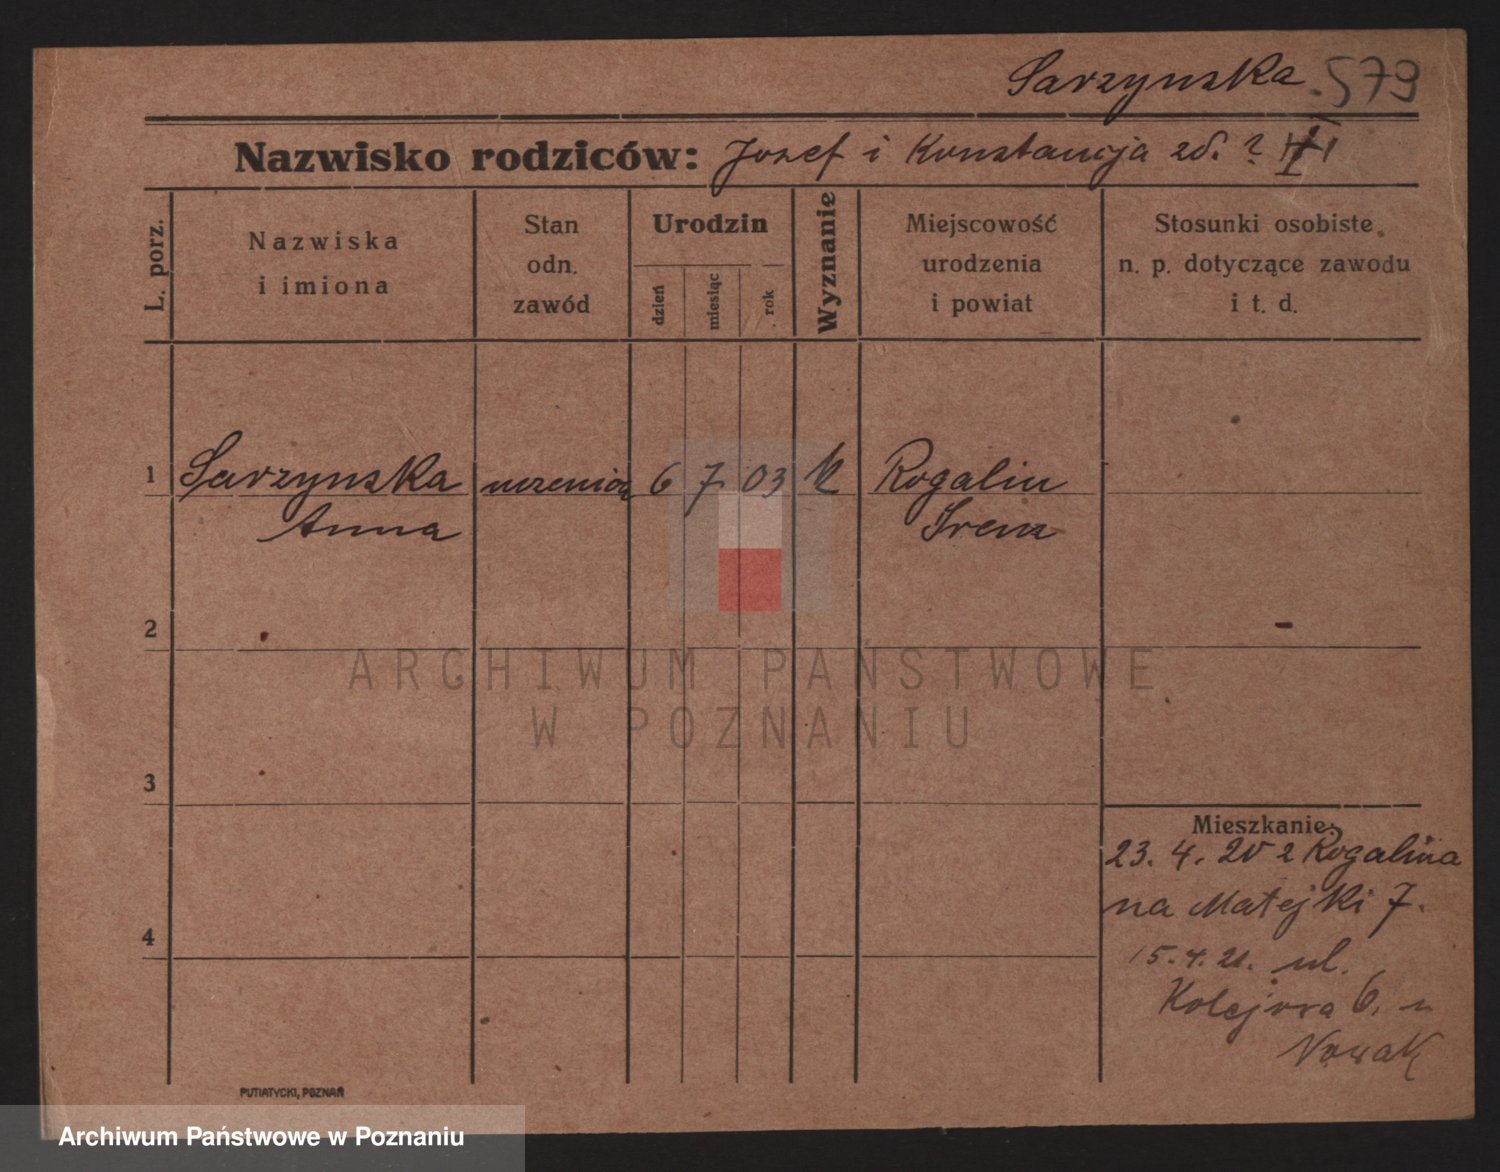 Sarzynska 579
Nazwisko rodziców: Jozef i Konstancja zd. ?
L. porz.
Nazwiska
i imiona
Stan
odn.
zawód
Urodzin
dzień
miesiąc
rok
Wyznanie
Miejscowość
urodzenia
i powiat
Stosunki osobiste
n. p. dotyczące zawodu
i t. d.
1 Sarzynska uczenica 6 7 03 k Rogalin
Anna Srem
2
3
4
Mieszkanie:
23. 4. 20 z Rogalina
na Matejki 7.
15. 4. 21. ul.
Kolejowa 6. u
Nowak
PUTIATYCKI, POZNAŃ
ARCHIWUM PAŃSTWOWE
W POZNANIU
Archiwum Państwowe w Poznaniu